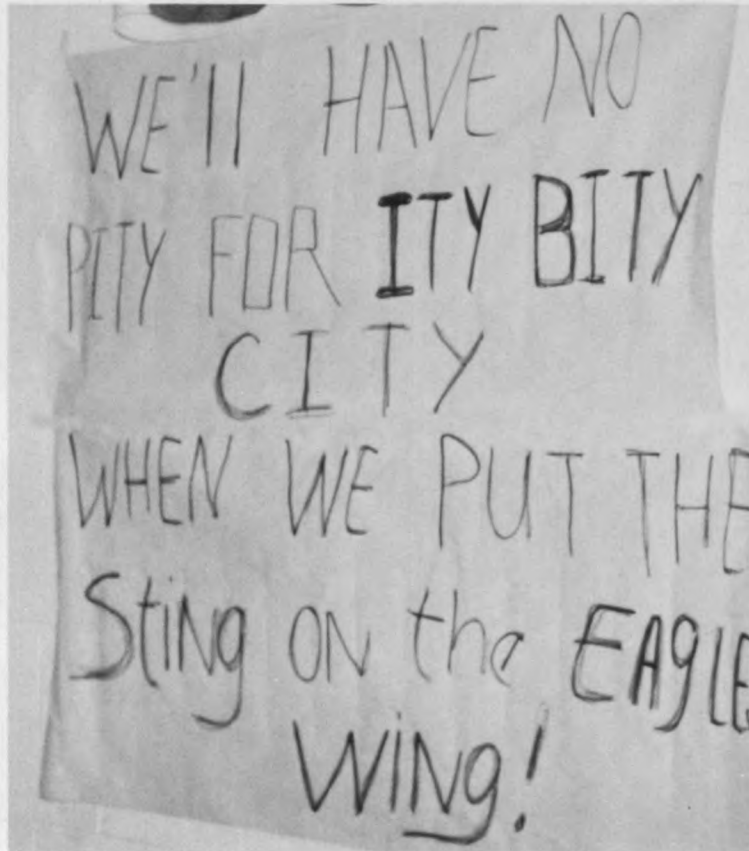 WE'll HAVE NO
PITY FOR ITY BITY
CITY
WHEN WE PUT THE
StiNg ON the EAglE
WiNg!